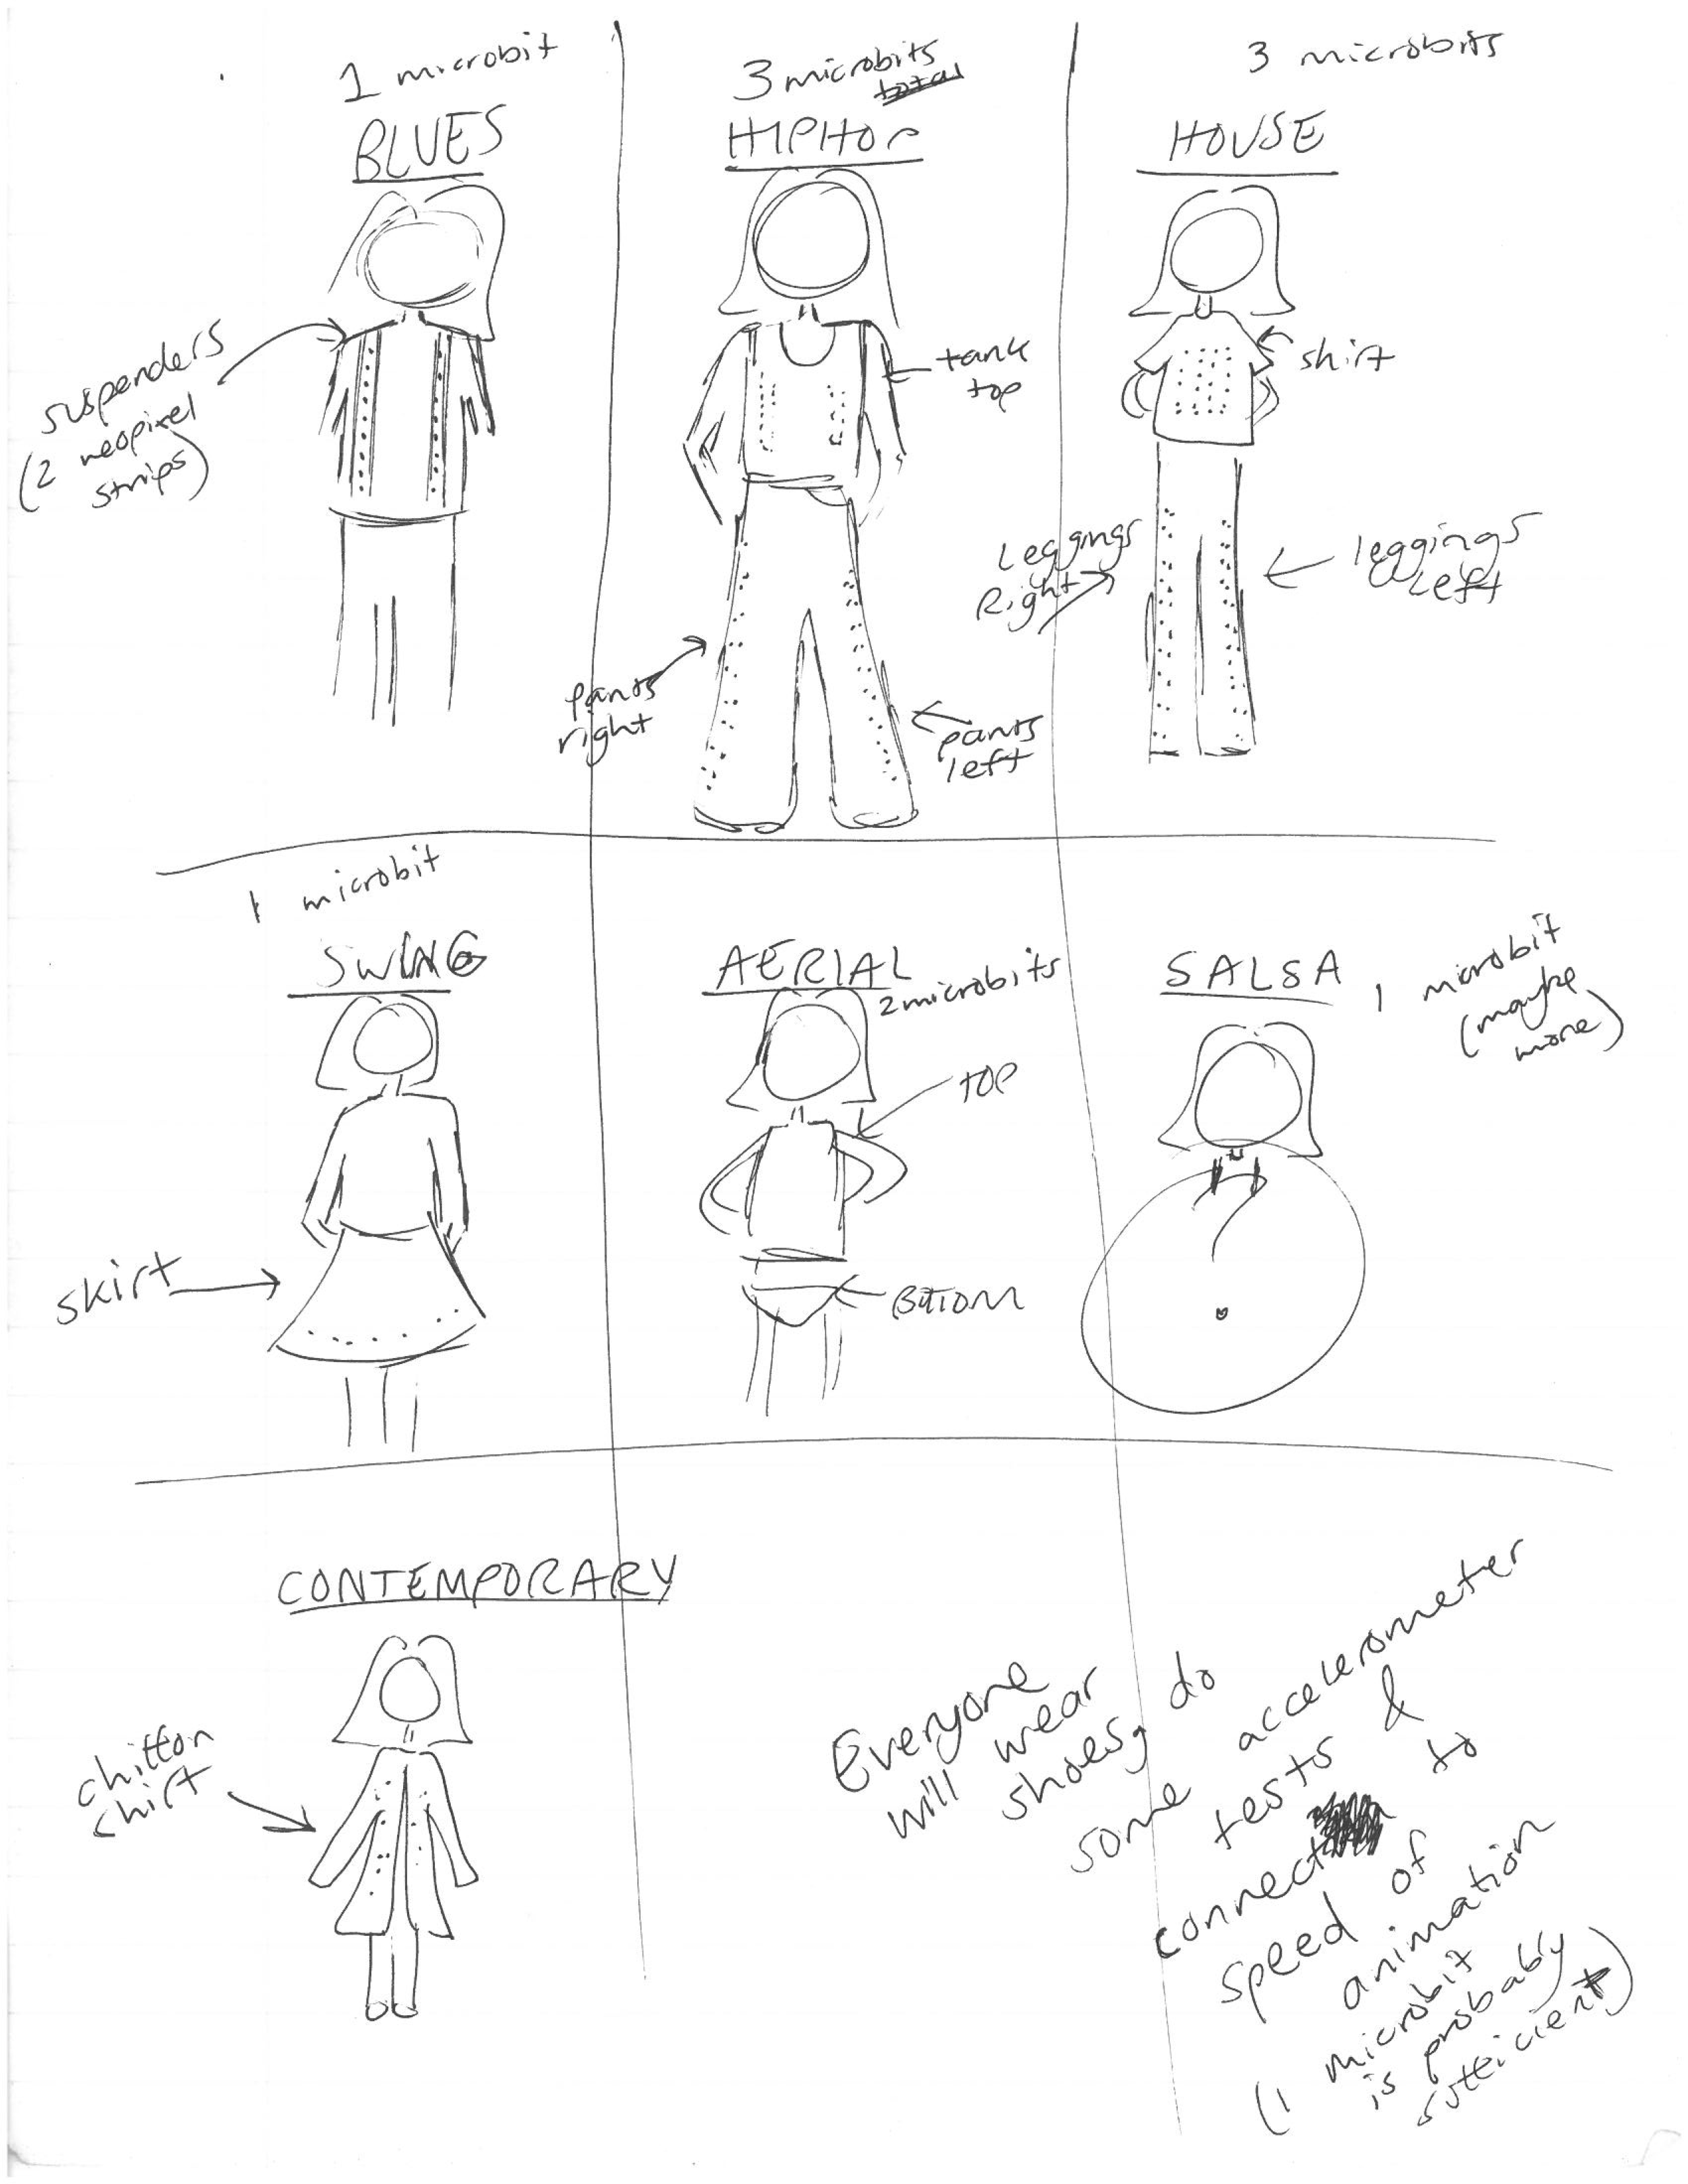 1 microbit
BLUES
suspenders
(2 neopixel
strips)
3 microbits
total
HIPHOP
tank
top
pants
right
pants
left
3 microbits
HOUSE
shirt
Leggings
Right
leggings
Left
1 microbit
SWING
skirt
AERIAL
2 microbits
TOP
BOTTOM
SALSA
1 microbit
(maybe
more)
?
CONTEMPORARY
chitton
shirt
Everyone
will wear
shoes, do
some accelerometer
tests &
connect to
speed of
animation
(1 microbit
is probably
sufficient)